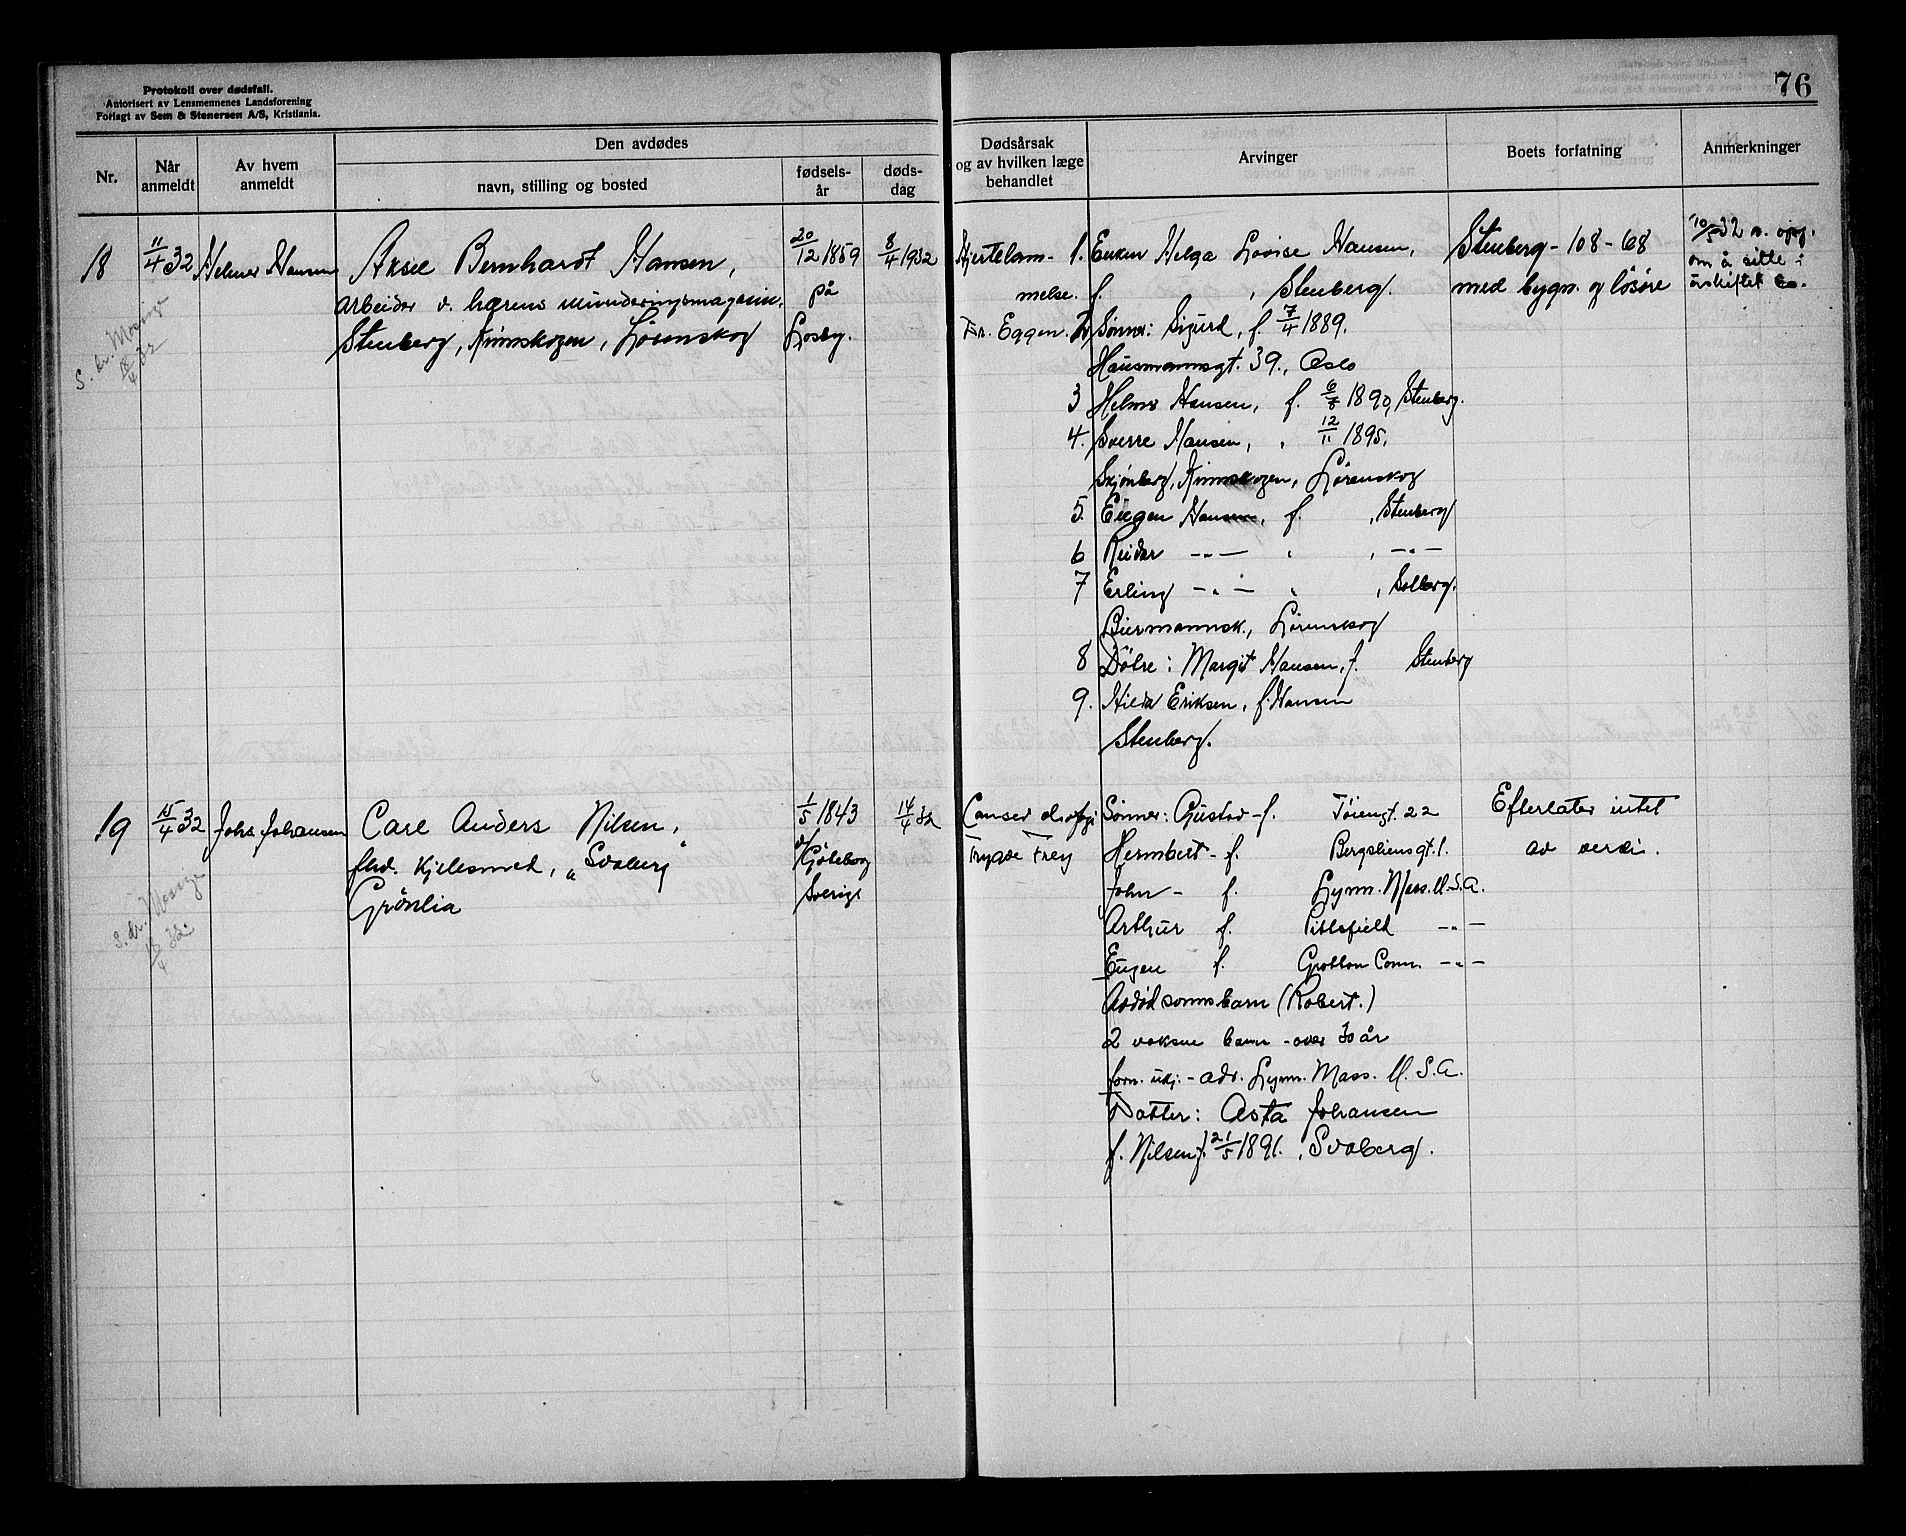 Protokoll over dødsfall.
Autorisert av Lensmennenes Landsforening
Forlagt av Sem & Stenersen A/S, Kristiania.
76
Nr.
Når anmeldt
Av hvem anmeldt
Den avdødes
navn, stilling og bosted
fødsels-år
døds-dag
Dødsårsak og av hvilken læge behandlet
Arvinger
Boets forfatning
Anmerkninger
18
11/4 32
Helmer Hansen
Aksel Bernhardt Hansen,
arbeider v. hærens munderingsmagasin,
Stenberg, Rimskogen, Lørenskog
20/12 1859
på
Losby.
8/4 1932
Hjertelam-
melse.
Dr. Eggen.
1. Enken Helga Lovise Hansen,
f. , Stenberg.
2, Sønner: Sigurd, f. 7/4 1889.
Hausmannsgt. 39., Oslo
3 Helmer Hansen, f. 6/8 1890, Stenberg.
4. Sverre Hansen, " 12/11 1895,
Skjønberg, Rimskogen, Lørenskog
5. Eugen Hansen, f. , Stenberg
6 Reidar -"- " , -"-
7 Erling -"- " , Solberg.
Biermannsk., Lørenskog
8 Døtre: Margit Hansen, f. Stenberg
9. Hilda Eriksen, f. Hansen
Stenberg.
Stenberg - 108 - 68
med bygn. og løsøre
10/5 32 n. opg.
om å sitte i
uskiftet bo.
S. dr. Mosing
18/4 32
19
15/4 32
Johs Johansen
Carl Anders Nilsen,
fhv. kjelesmed, "Svaberg"
Grønlia
1/5 1843
v/ Gøteborg
Sverige
14/4 32
Cancer
Trygve Frey
Sønner: Gustav - f. Tøiengt. 22
Hermbert - f. Bergsliensgt. 1.
John - f. Lynn. Mass. U.S.A.
Arthur f. Pittsfield -"-
Eugen f. Grotton Conn. -"-
Avdød sønns barn (Robert.)
2 voksne barn - over 30 år
forn. ukj. - adr. Lynn. Mass. U.S.A.
Datter: Asta Johansen
f. Nilsen f. 21/5 1891., Svaberg.
Efterlater intet
av verdi.
S. dr. Mosing
18/4 32.